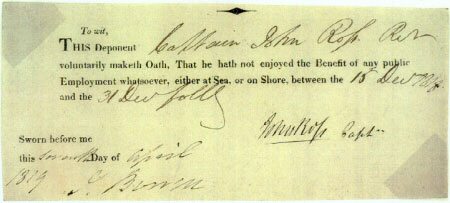 To wit,
THIS Deponent Captain John Ross RN
voluntarily maketh Oath, That he hath not enjoyed the Benefit of any public
Employment whatsoever, either at Sea, or on Shore, between the 18 Dec
and the 31 Dec follg
John Ross Captn
Sworn before me
this seventh Day of April
1819 Brown